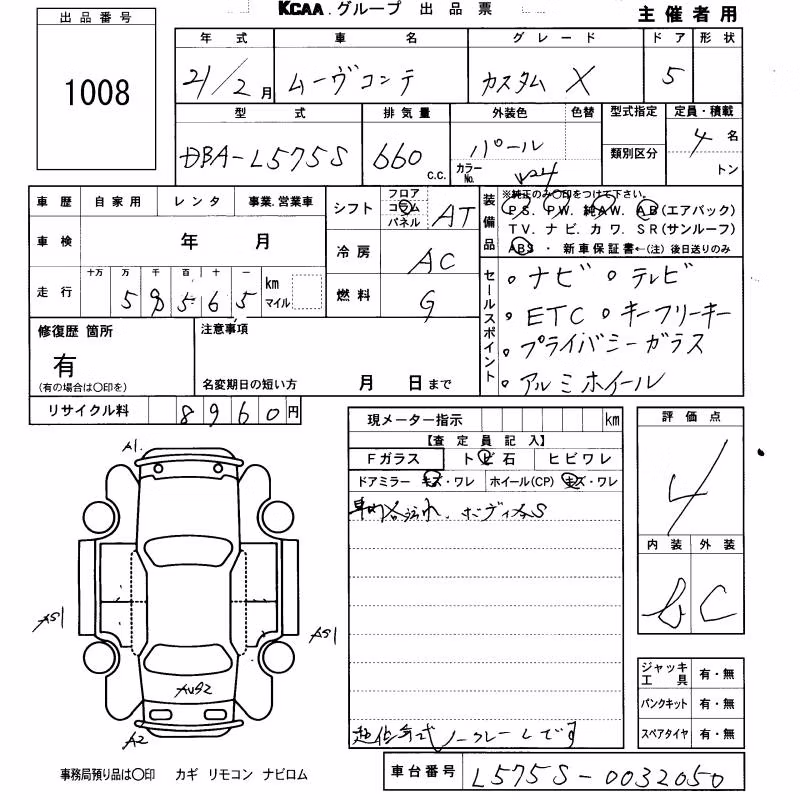 KCAA.グループ 出品票 主催者用
出品番号
1008
年式 車名 グレード ドア 形状
21/2月 ムーヴコンテ カスタム X 5
型式 排気量 外装色 色替 型式指定 定員・積載
DBA-L575S 660 C.C. パール 4 名
カラーNo. W24 類別区分 トン
車歴 自家用 レンタ 事業.営業車
車検 年 月
走行 十万 万 千 百 十 一 km マイル
5 9 5 6 5
シフト フロア コラム パネル AT
冷房 AC
燃料 G
装備品 ※純正のみ〇印をつけて下さい。
PS. PW. 純AW. AB(エアバック)
TV. ナビ. カワ. SR(サンルーフ)
ABS ・ 新車保証書←(注) 後日送りのみ
セールスポイント
。ナビ 。テレビ
。ETC 。キーフリーキー
。プライバシーガラス
。アルミホイール
修復歴 箇所 注意事項
有
(有の場合は〇印を) 名変期日の短い方 月 日まで
リサイクル料 8960円
現メーター指示 km
【査定員記入】
Fガラス トビ石 ヒビワレ
ドアミラー キズ・ワレ ホイール(CP) キズ・ワレ
車内 汚れ、ボディ S
ノークレームです
評価点
4
内装 外装
b C
ジャッキ工具 有・無
パンクキット 有・無
スペアタイヤ 有・無
A1.
AS1
AS1
AU92
A2
事務局預り品は〇印 カギ リモコン ナビロム
車台番号 L575S-0032050